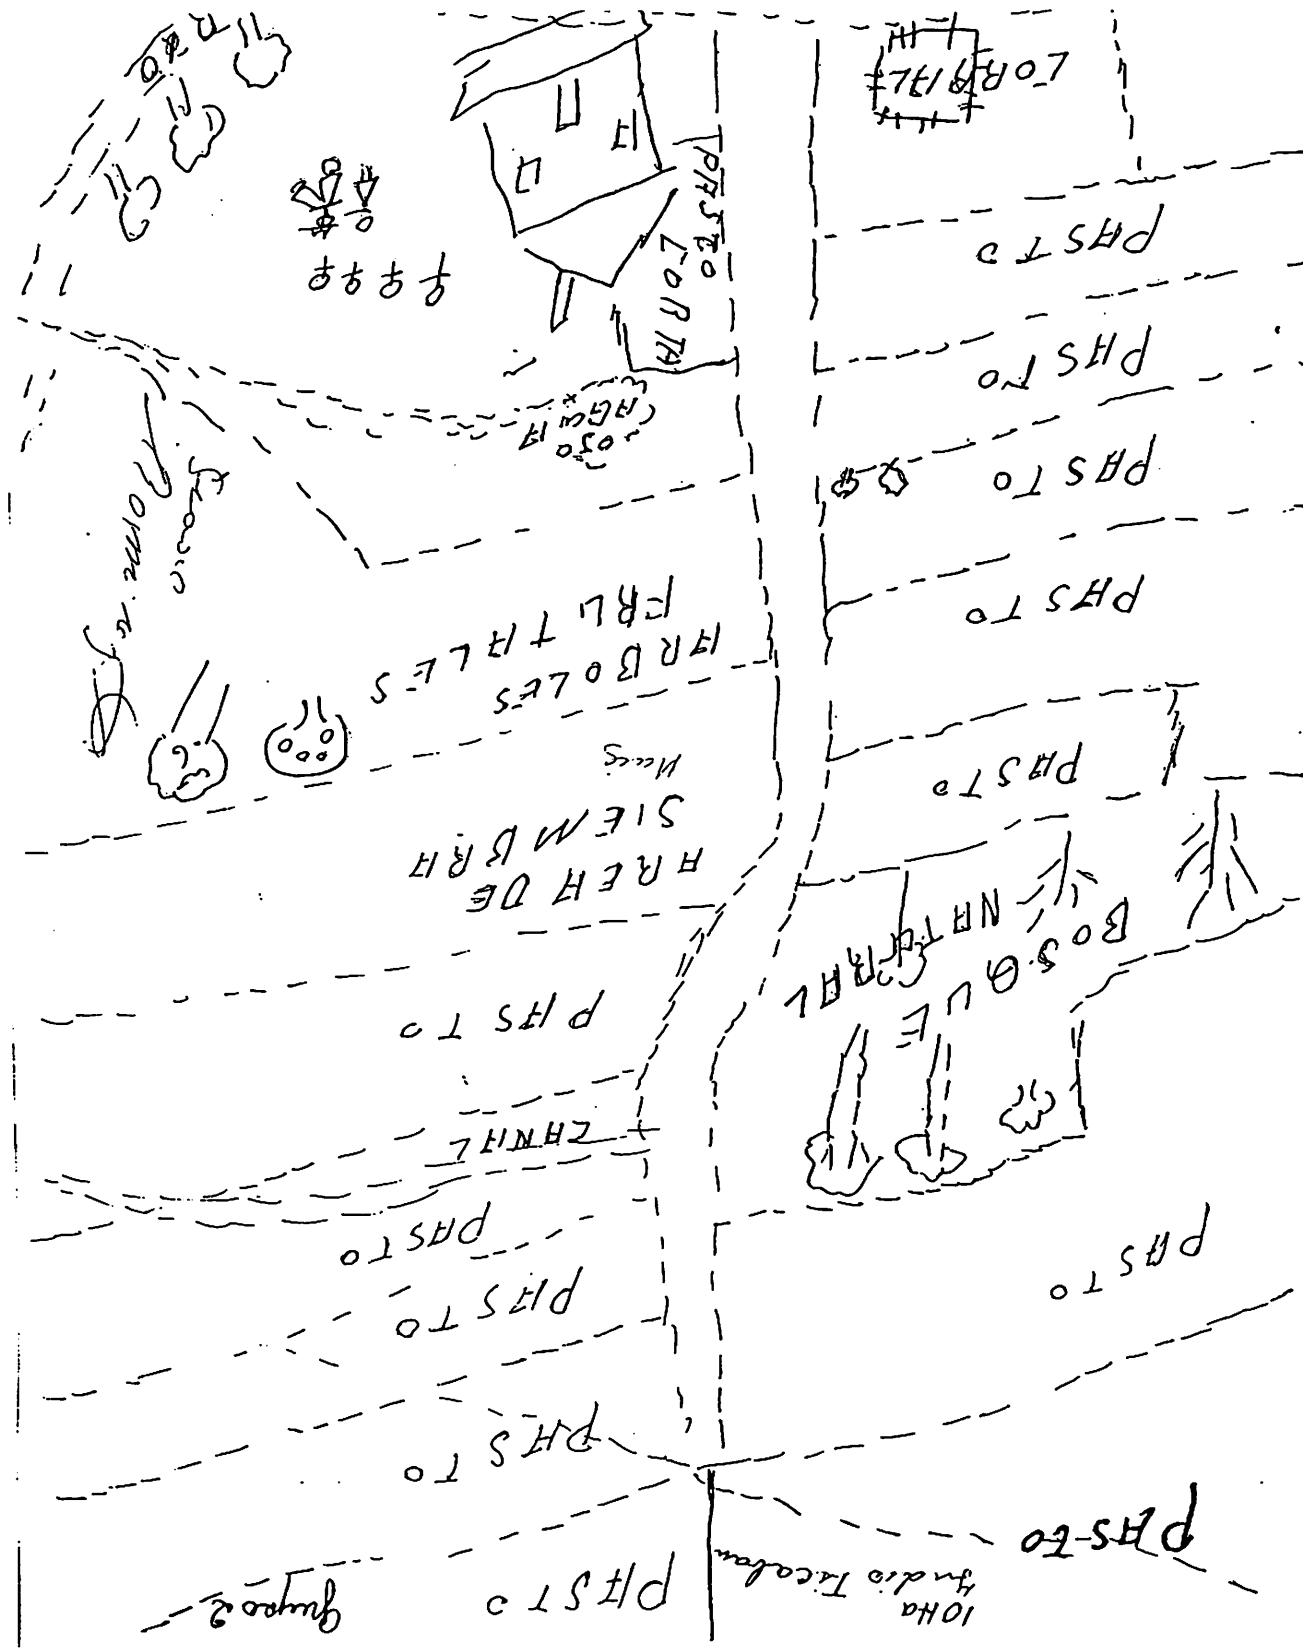 10 Ha
Indio Ticaban
grupo 2
PASTO
PASTO
PASTO
PASTO
PASTO
PASTO
CANAL
PASTO
BOSQUE
NATURAL
AREA DE
SIEMBRA
Maiz
PASTO
ARBOLES
FRUTALES
PASTO
PASTO
OJO
AGUA
PASTO
PASTO
CORTA
PASTO
CORRALE